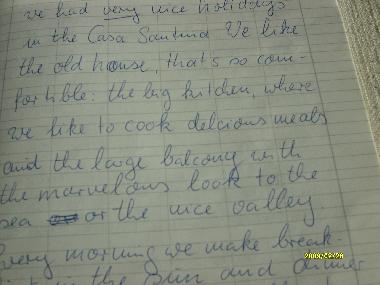 we had very nice holidays
in the Casa Santina We like
the old house, that's so com-
fortible: the big kitchen, where
we like to cook delcious meals
and the large balcony with
the marvelous look to the
sea or the nice valley
Every morning we make break-
in the sun and dinner